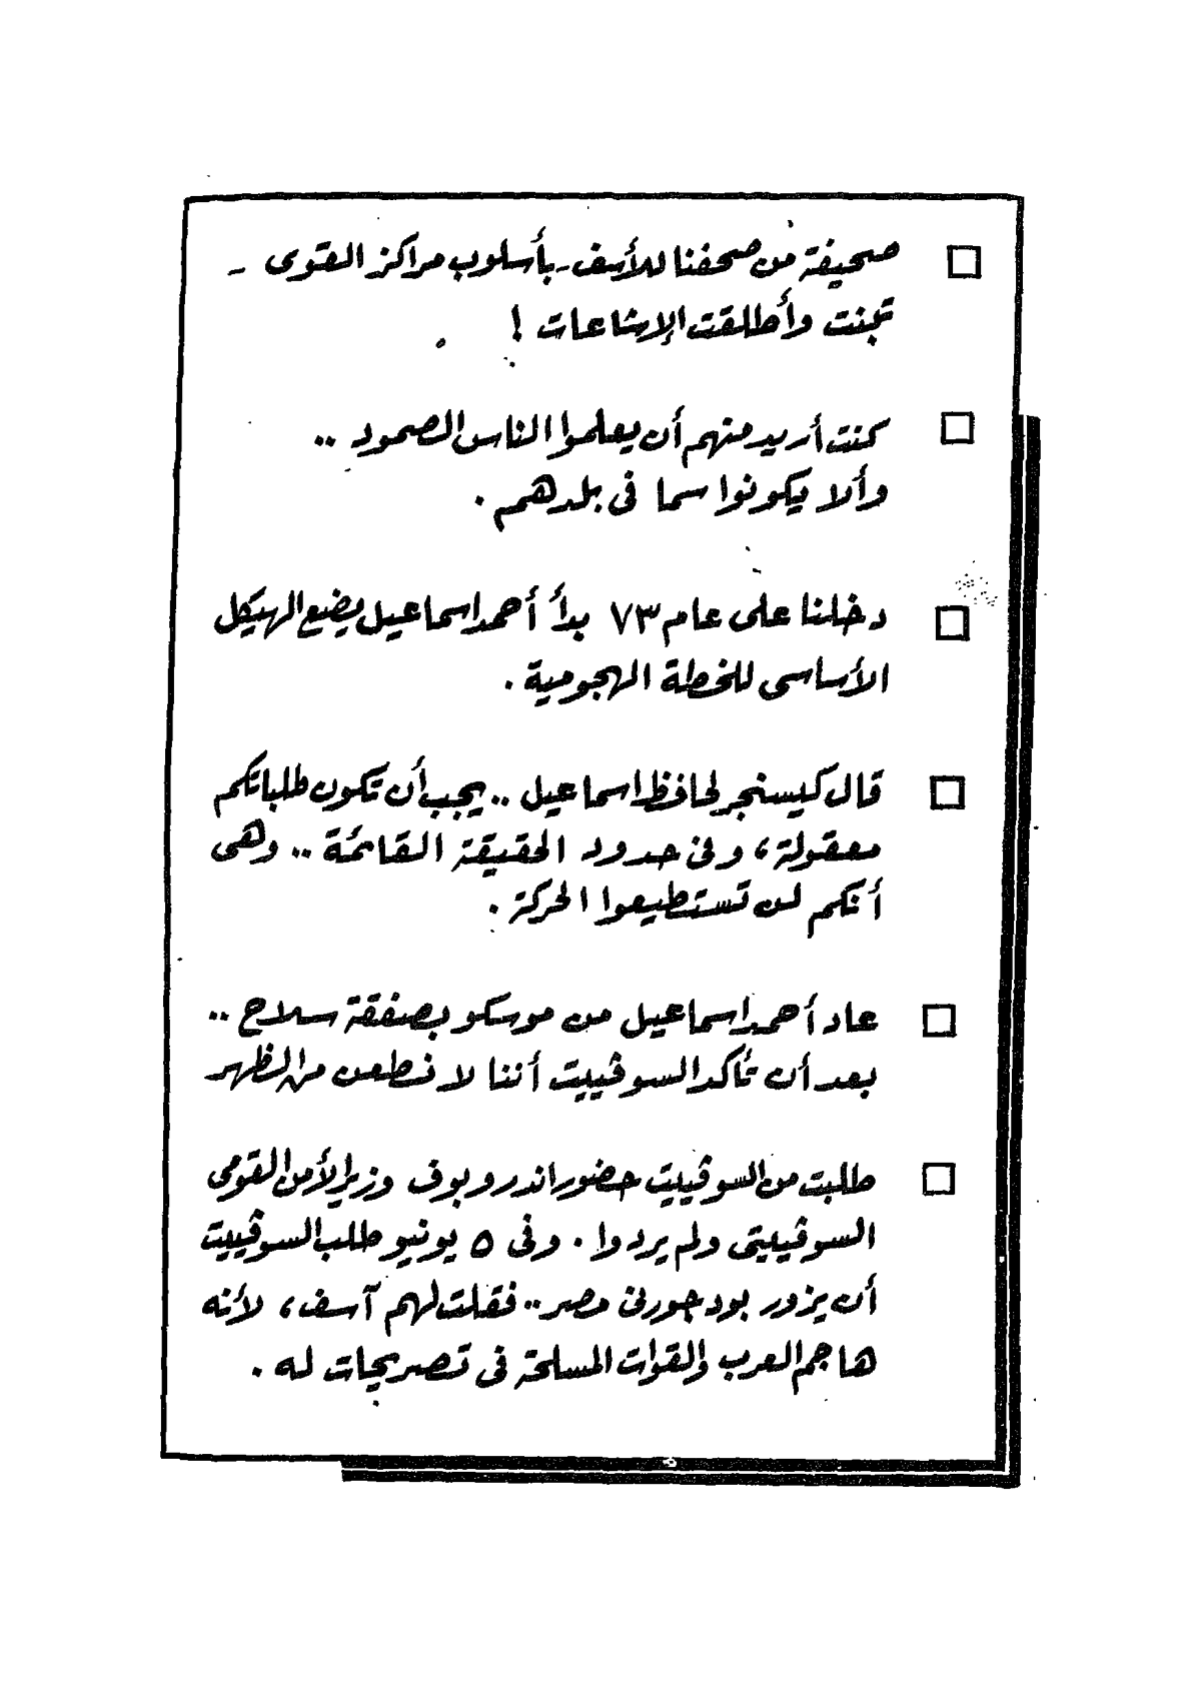 □ صحيفة من صحفنا للأسف - بأسلوب مراكز القوى -
تجنت وأطلقت الإشاعات !
□ كنت أريد منهم أن يعلموا الناس الصمود ..
وألا يكونوا سما فى بلدهم .
□ دخلنا على عام ٧٣ بدأ أحمد اسماعيل يضع الهيكل
الأساسى للخطة الهجومية .
□ قال كيسنجر لحافظ اسماعيل .. يجب أن تكون طلباتكم
معقولة ، وفى حدود الحقيقة القائمة .. وهى
أنكم لن تستطيعوا الحركة .
□ عاد أحمد اسماعيل من موسكو بصفقة سلاح ..
بعد أن تأكد السوڤييت أننا لا نطعن من الظهر
□ طلبت من السوڤييت حضور اندروبوف وزير الأمن القومى
السوڤييتى ولم يردوا . وفى ٥ يونيو طلب السوڤييت
أن يزور بودجورنى مصر .. فقلت لهم آسف ، لأنه
هاجم العرب والقوات المسلحة فى تصريحات له .